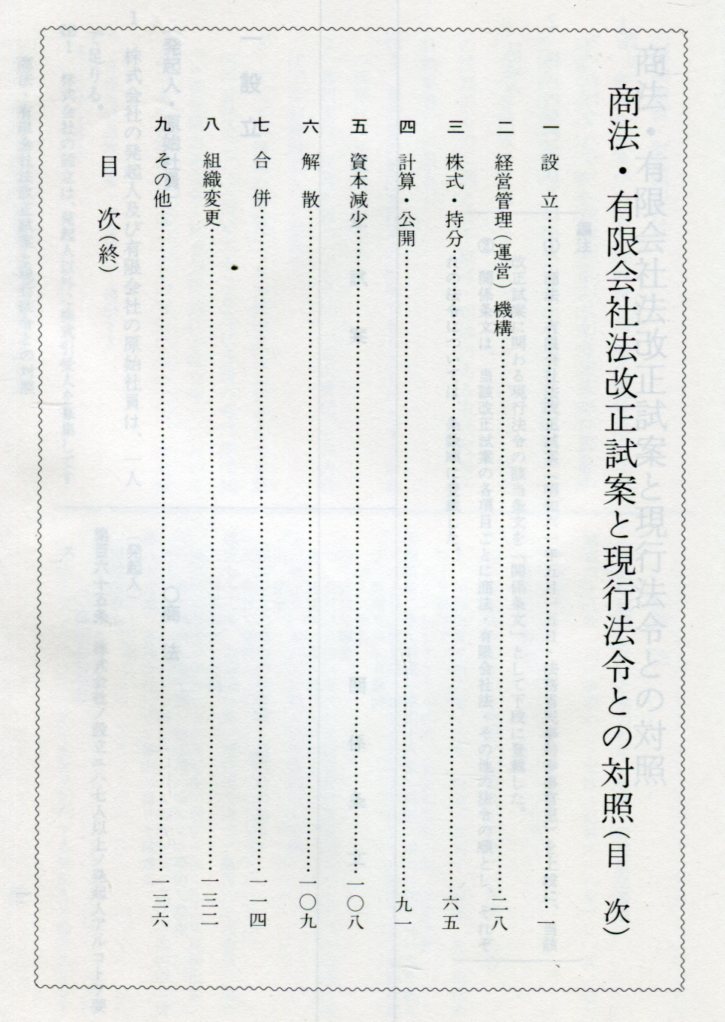 商法・有限会社法改正試案と現行法令との対照（目　次）
一　設　立……………………一
二　経営管理（運営）機構……………………二八
三　株式・持分……………………六五
四　計算・公開……………………九一
五　資本減少……………………一〇八
六　解　散……………………一〇九
七　合　併……………………一一四
八　組織変更……………………一三二
九　その他……………………一三六
目　次（終）